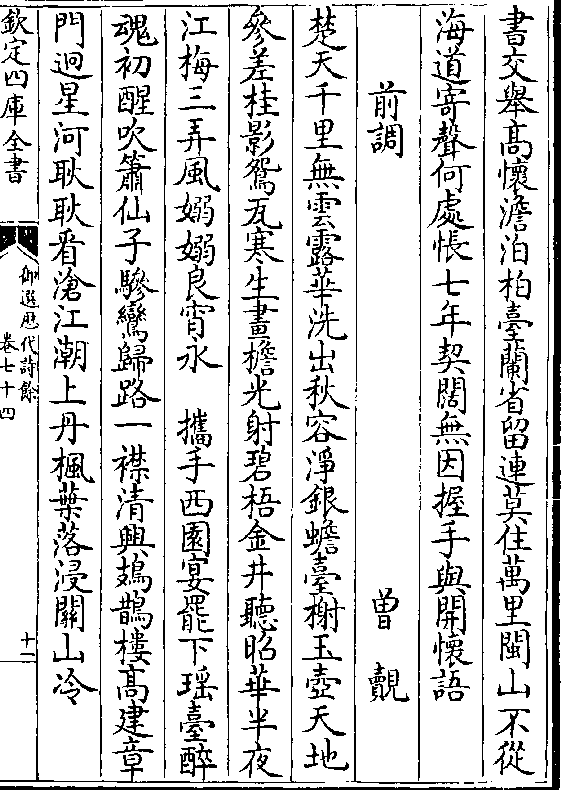 書交舉髙懷澹泊柏臺蘭省留連莫住萬里閩山不從
海道寄聲何處悵七年契闊無因握手與開懷語
前調　曽覿
楚天千里無雲露華洗出秋容淨銀蟾臺榭玉壺天地
參差桂影鴛瓦寒生畫檐光射碧梧金井聽昭華半夜
江梅三弄風嫋嫋良宵永　攜手西園宴罷下瑶臺醉
魂初醒吹簫仙子驂鸞歸路一襟清興鳷鵲樓髙建章
門迥星河耿耿看滄江潮上丹楓葉落浸關山冷
欽定四庫全書
御選歴代詩餘
卷七十四
十二